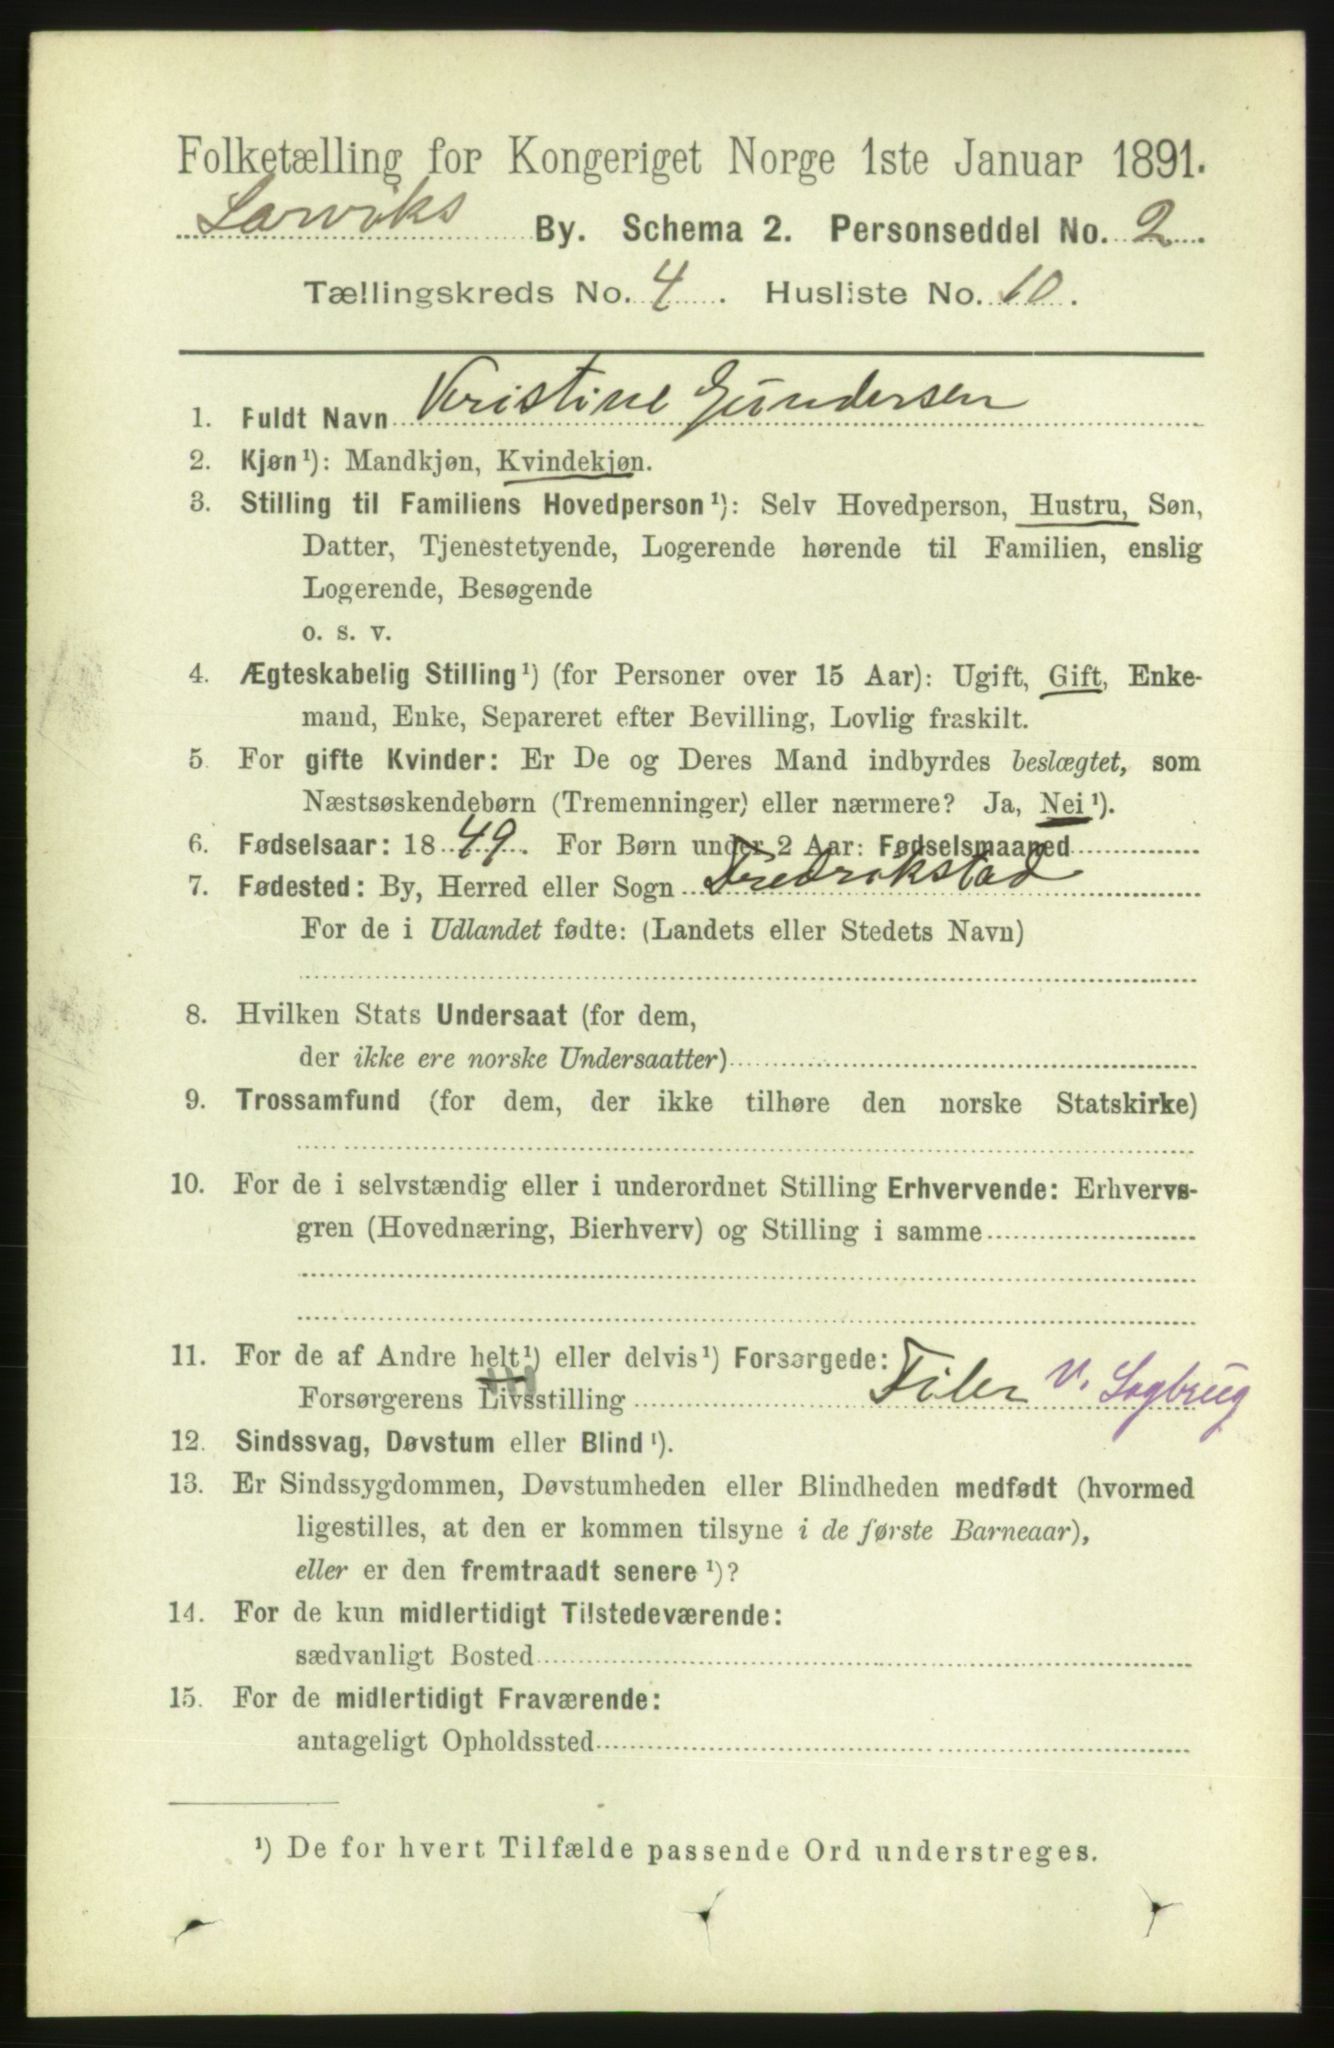 Folketælling for Kongeriget Norge 1ste Januar 1891.
Larviks By. Schema 2. Personseddel No. 2.
Tællingskreds No. 4. Husliste No. 10.
1. Fuldt Navn Kristine Gundersen
2. Kjøn¹): Mandkjøn, Kvindekjøn.
3. Stilling til Familiens Hovedperson¹): Selv Hovedperson, Hustru, Søn,
Datter, Tjenestetyende, Logerende hørende til Familien, enslig
Logerende, Besøgende
o. s. v.
4. Ægteskabelig Stilling¹) (for Personer over 15 Aar): Ugift, Gift, Enke-
mand, Enke, Separeret efter Bevilling, Lovlig fraskilt.
5. For gifte Kvinder: Er De og Deres Mand indbyrdes beslægtet, som
Næstsøskendebørn (Tremenninger) eller nærmere? Ja, Nei¹).
6. Fødselsaar: 1849. For Børn under 2 Aar: Fødselsmaaned
7. Fødested: By, Herred eller Sogn Fredrikstad
For de i Udlandet fødte: (Landets eller Stedets Navn)
8. Hvilken Stats Undersaat (for dem,
der ikke ere norske Undersaatter)
9. Trossamfund (for dem, der ikke tilhøre den norske Statskirke)
10. For de i selvstændig eller i underordnet Stilling Erhvervende: Erhvervs-
gren (Hovednæring, Bierhverv) og Stilling i samme
11. For de af Andre helt¹) eller delvis¹) Forsørgede:
Forsørgerens Livsstilling Filer v. Sagbrug
12. Sindssvag, Døvstum eller Blind¹).
13. Er Sindssygdommen, Døvstumheden eller Blindheden medfødt (hvormed
ligestilles, at den er kommen tilsyne i de første Barneaar),
eller er den fremtraadt senere¹)?
14. For de kun midlertidigt Tilstedeværende:
sædvanligt Bosted
15. For de midlertidigt Fraværende:
antageligt Opholdssted
¹) De for hvert Tilfælde passende Ord understreges.